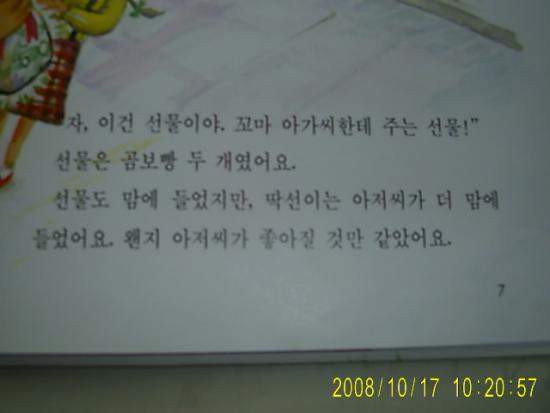 "자, 이건 선물이야. 꼬마 아가씨한테 주는 선물!"
선물은 곰보빵 두 개였어요.
선물도 맘에 들었지만, 딱선이는 아저씨가 더 맘에
들었어요. 왠지 아저씨가 좋아질 것만 같았어요.
7
2008/10/17 10:20:57